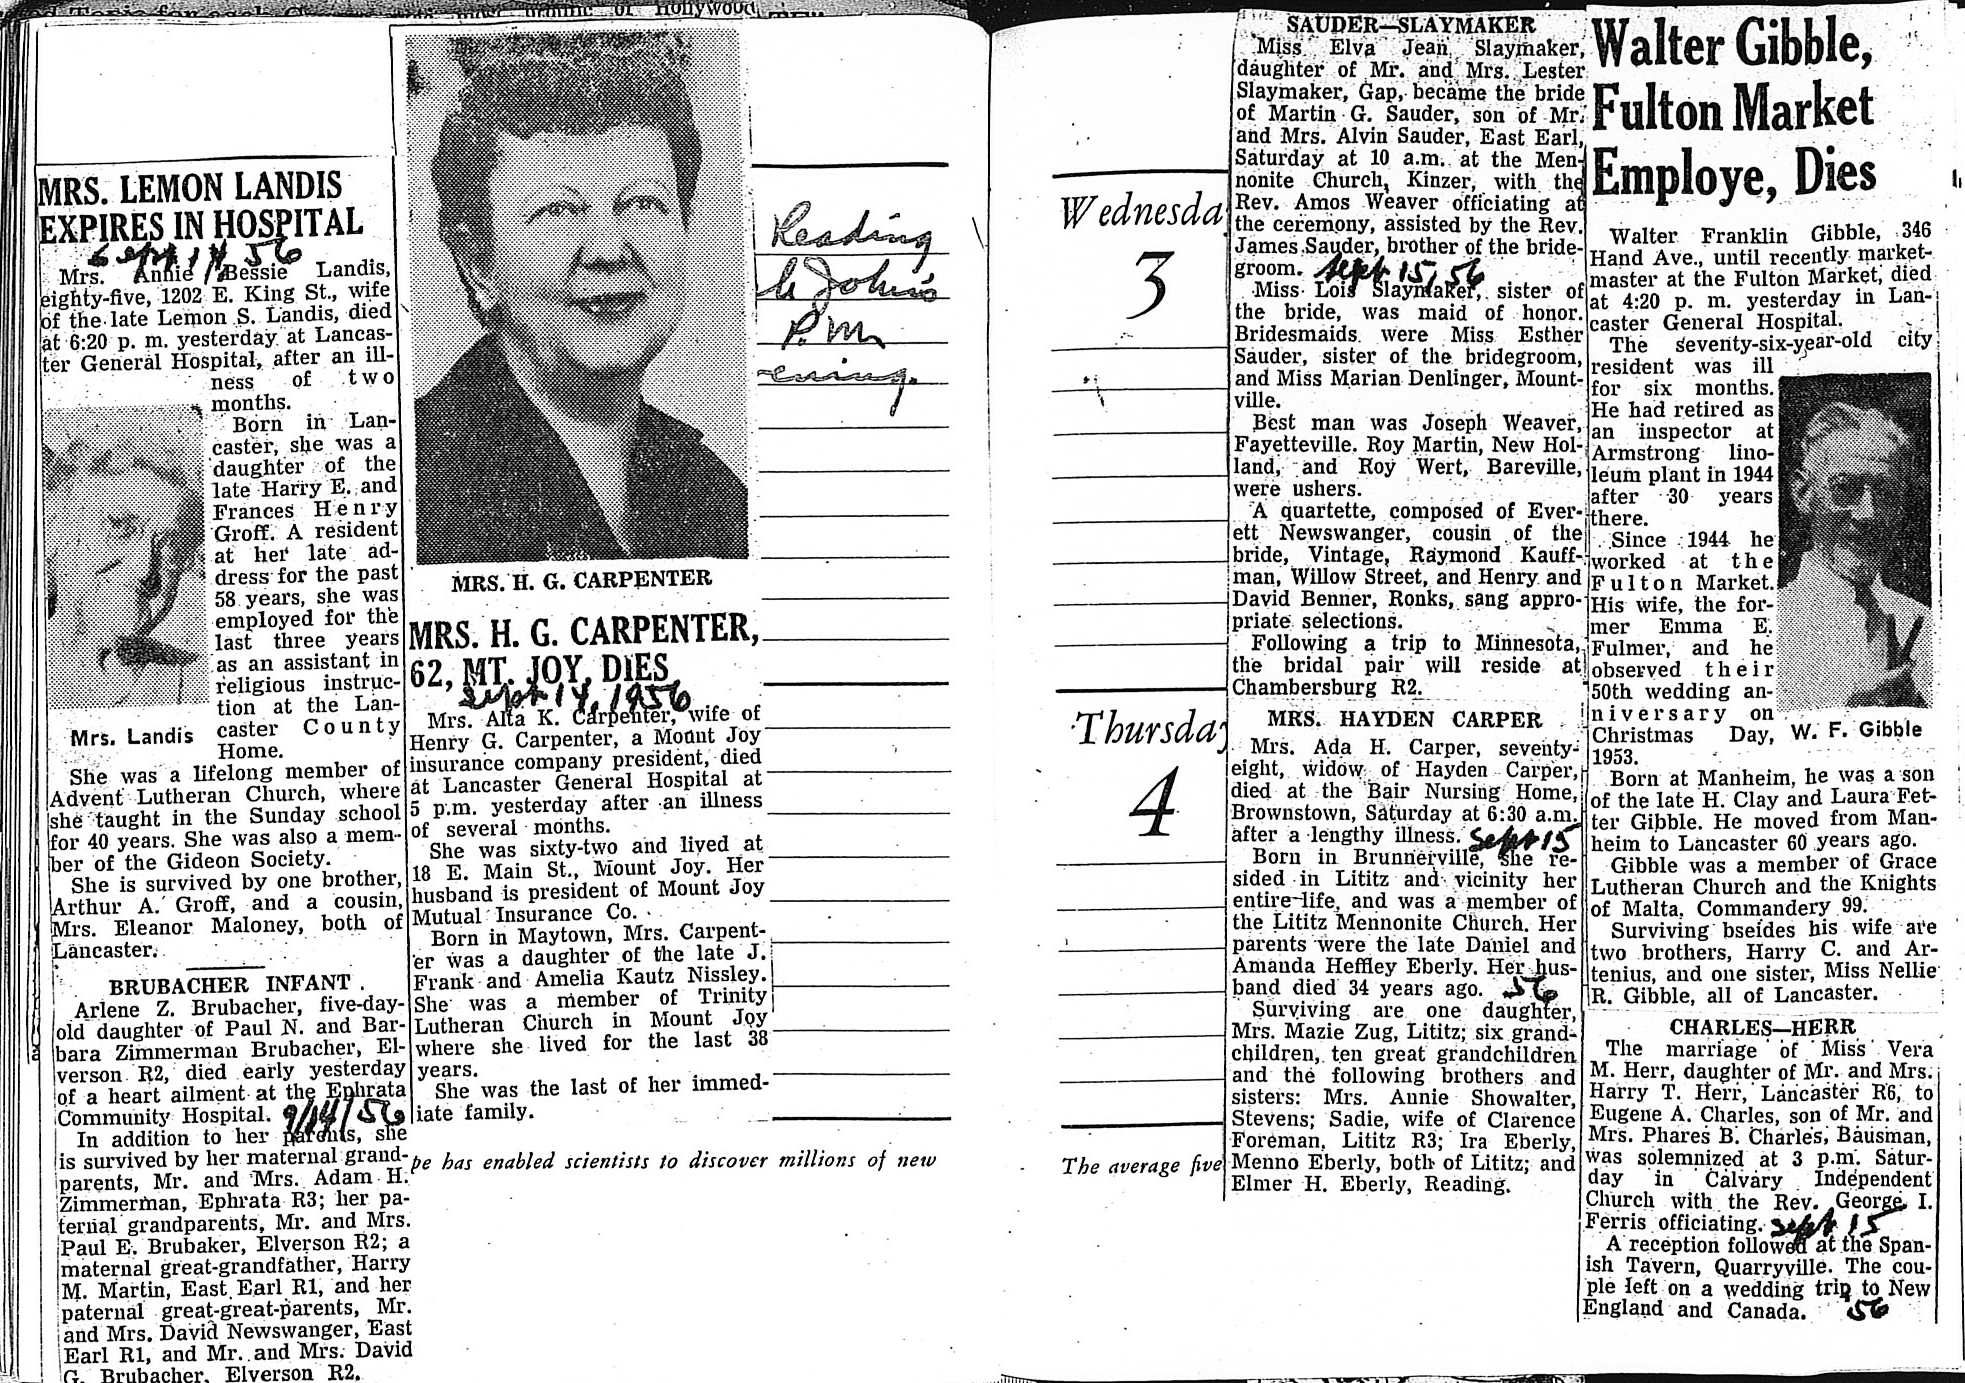 MRS. LEMON LANDIS
EXPIRES IN HOSPITAL
Sept 14 56
Mrs. Annie Bessie Landis,
eighty-five, 1202 E. King St., wife
of the late Lemon S. Landis, died
at 6:20 p. m. yesterday at Lancas-
ter General Hospital, after an ill-
ness of two
months.
Born in Lan-
caster, she was a
daughter of the
late Harry E. and
Frances Henry
Groff. A resident
at her late ad-
dress for the past
58 years, she was
employed for the
last three years
as an assistant in
religious instruc-
tion at the Lan-
caster County
Home.
Mrs. Landis
She was a lifelong member of
Advent Lutheran Church, where
she taught in the Sunday school
for 40 years. She was also a mem-
ber of the Gideon Society.
She is survived by one brother,
Arthur A. Groff, and a cousin,
Mrs. Eleanor Maloney, both of
Lancaster.
BRUBACHER INFANT.
Arlene Z. Brubacher, five-day-
old daughter of Paul N. and Bar-
bara Zimmerman Brubacher, El-
verson R2, died early yesterday
of a heart ailment at the Ephrata
Community Hospital. 9/14/56
In addition to her parents, she
is survived by her maternal grand-
parents, Mr. and Mrs. Adam H.
Zimmerman, Ephrata R3; her pa-
ternal grandparents, Mr. and Mrs.
Paul E. Brubaker, Elverson R2; a
maternal great-grandfather, Harry
M. Martin, East Earl R1, and her
paternal great-great-parents, Mr.
and Mrs. David Newswanger, East
Earl R1, and Mr. and Mrs. David
G. Brubacher, Elverson R2.
MRS. H. G. CARPENTER
MRS. H. G. CARPENTER,
62, MT. JOY, DIES
Sept 14, 1956
Mrs. Alta K. Carpenter, wife of
Henry G. Carpenter, a Mount Joy
insurance company president, died
at Lancaster General Hospital at
5 p.m. yesterday after an illness
of several months.
She was sixty-two and lived at
18 E. Main St., Mount Joy. Her
husband is president of Mount Joy
Mutual Insurance Co.
Born in Maytown, Mrs. Carpent-
er was a daughter of the late J.
Frank and Amelia Kautz Nissley.
She was a member of Trinity
Lutheran Church in Mount Joy
where she lived for the last 38
years.
She was the last of her immed-
iate family.
Reading
John's
P.M.
ening.
pe has enabled scientists to discover millions of new
Wednesda
3
Thursday
4
The average five
SAUDER—SLAYMAKER
Miss Elva Jean Slaymaker,
daughter of Mr. and Mrs. Lester
Slaymaker, Gap, became the bride
of Martin G. Sauder, son of Mr.
and Mrs. Alvin Sauder, East Earl,
Saturday at 10 a.m. at the Men-
nonite Church, Kinzer, with the
Rev. Amos Weaver officiating at
the ceremony, assisted by the Rev.
James Sauder, brother of the bride-
groom. Sept 15, 56
Miss Lois Slaymaker, sister of
the bride, was maid of honor.
Bridesmaids were Miss Esther
Sauder, sister of the bridegroom,
and Miss Marian Denlinger, Mount-
ville.
Best man was Joseph Weaver,
Fayetteville. Roy Martin, New Hol-
land, and Roy Wert, Bareville,
were ushers.
A quartette, composed of Ever-
ett Newswanger, cousin of the
bride, Vintage, Raymond Kauff-
man, Willow Street, and Henry and
David Benner, Ronks, sang appro-
priate selections.
Following a trip to Minnesota,
the bridal pair will reside at
Chambersburg R2.
MRS. HAYDEN CARPER
Mrs. Ada H. Carper, seventy-
eight, widow of Hayden Carper,
died at the Bair Nursing Home,
Brownstown, Saturday at 6:30 a.m.
after a lengthy illness. Sept 15
Born in Brunnerville, she re-
sided in Lititz and vicinity her
entire life, and was a member of
the Lititz Mennonite Church. Her
parents were the late Daniel and
Amanda Heffley Eberly. Her hus-
band died 34 years ago. 56
Surviving are one daughter,
Mrs. Mazie Zug, Lititz; six grand-
children, ten great grandchildren
and the following brothers and
sisters: Mrs. Annie Showalter,
Stevens; Sadie, wife of Clarence
Foreman, Lititz R3; Ira Eberly,
Menno Eberly, both of Lititz; and
Elmer H. Eberly, Reading.
Walter Gibble,
Fulton Market
Employe, Dies
Walter Franklin Gibble, 346
Hand Ave., until recently market-
master at the Fulton Market, died
at 4:20 p. m. yesterday in Lan-
caster General Hospital.
The seventy-six-year-old city
resident was ill
for six months.
He had retired as
an inspector at
Armstrong lino-
leum plant in 1944
after 30 years
there.
Since 1944 he
worked at the
Fulton Market.
His wife, the for-
mer Emma E.
Fulmer, and he
observed their
50th wedding an-
niversary on
Christmas Day,
1953.
W. F. Gibble
Born at Manheim, he was a son
of the late H. Clay and Laura Fet-
ter Gibble. He moved from Man-
heim to Lancaster 60 years ago.
Gibble was a member of Grace
Lutheran Church and the Knights
of Malta, Commandery 99.
Surviving bseides his wife are
two brothers, Harry C. and Ar-
tenius, and one sister, Miss Nellie
R. Gibble, all of Lancaster.
CHARLES—HERR
The marriage of Miss Vera
M. Herr, daughter of Mr. and Mrs.
Harry T. Herr, Lancaster R6, to
Eugene A. Charles, son of Mr. and
Mrs. Phares B. Charles, Bausman,
was solemnized at 3 p.m. Satur-
day in Calvary Independent
Church with the Rev. George I.
Ferris officiating. Sept 15
A reception followed at the Span-
ish Tavern, Quarryville. The cou-
ple left on a wedding trip to New
England and Canada. 56